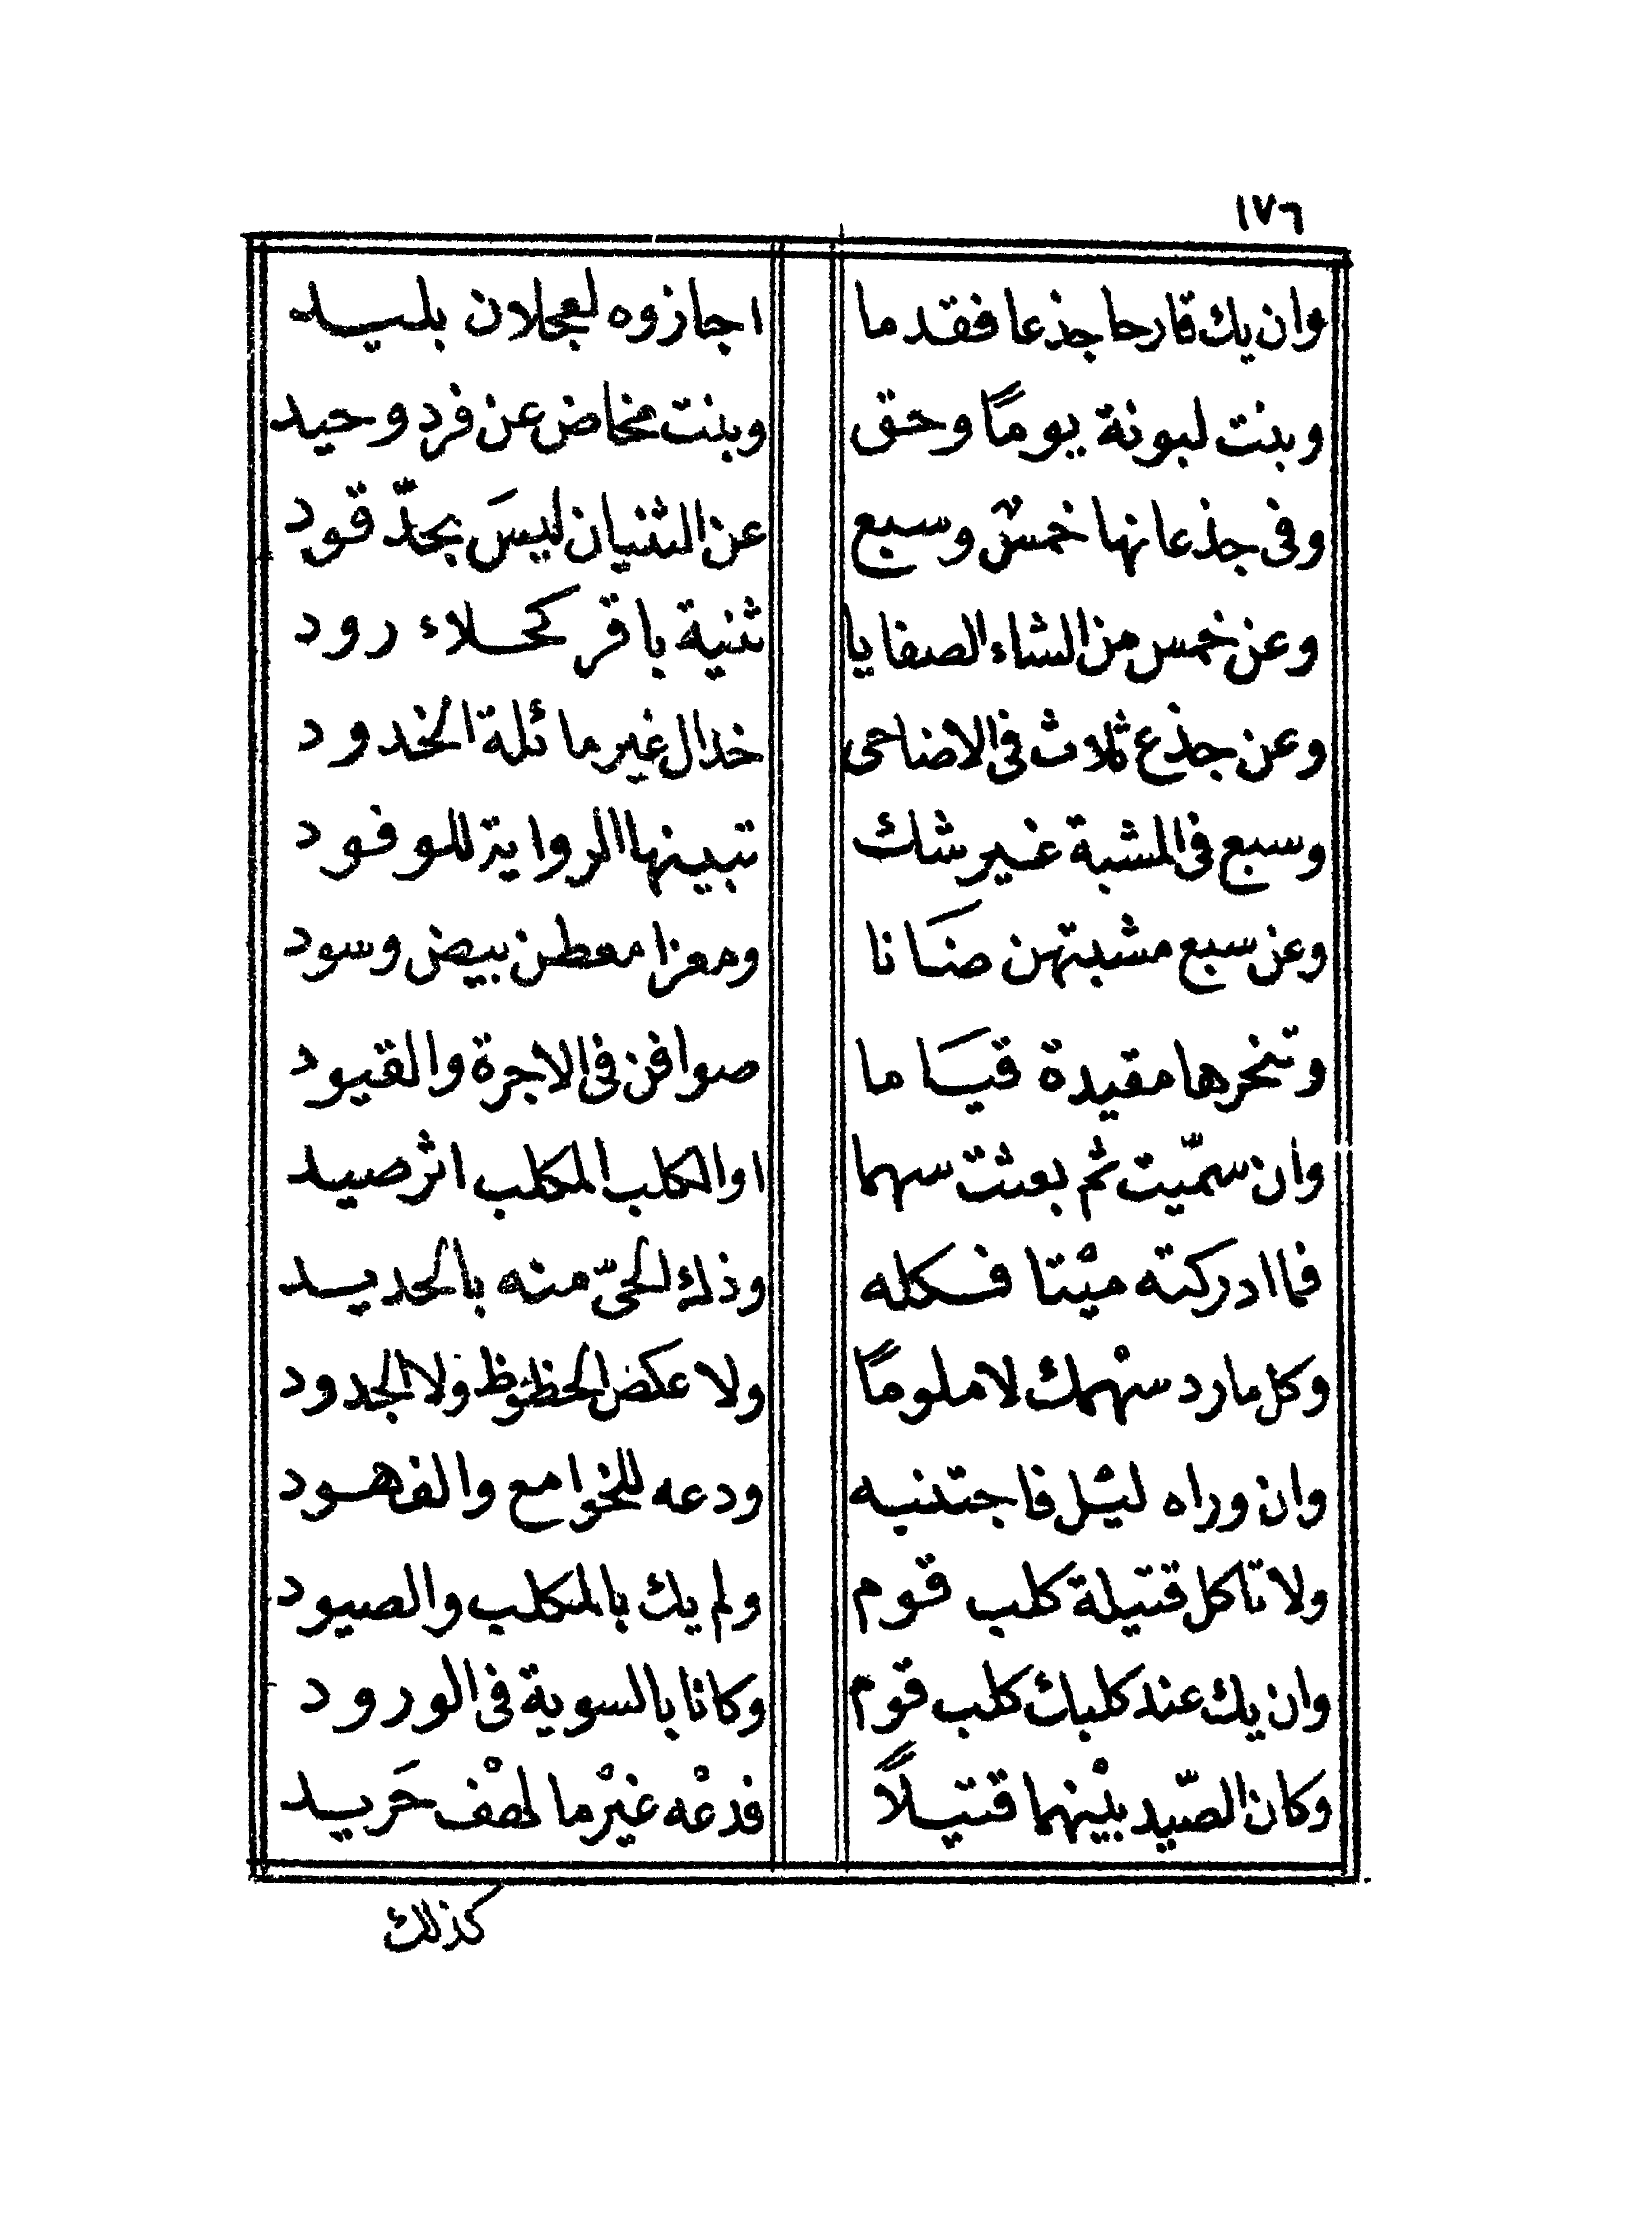 ١٧٦
وان يك قارحا جذعا فقدما اجازوه لعجلان بليد
وبنت لبونة يومًا وحق وبنت مخاض عن فرد وحيد
وفى جذعانها خمسٌ وسبع عن الثنيان ليسَ بحدّ قود
وعن خمس من الشاء الصفايا ثنية باقر كحلاء رود
وعن جذع ثلاث فى الاضاحى خدال غير مائلة الخدود
وسبع فى المشبة غير شك تبينها الرواية للوفود
وعن سبع مشبتهن ضَانا ومعزا معطن بيض وسود
وتنحرها مقيدة قيَاما صوافن فى الاجرة والقيود
وان سمّيت ثم بعثت سهما او الكلب المكلب اثر صيد
فما ادركته ميْتا فكله وذك الحىّ منه بالحديد
وكل ما رد سهْمك لا ملومًا ولا عكض الحظوظ ولا الجدود
وان وراه ليْل فاجتنبه ودعه للخوامع والفهود
ولا تاكل قتيلة كلب قوم ولم يك بالمكلب والصيود
وان يك عند كلبك كلب قوم وكانا بالسوية فى الورود
وكان الصّيد بيْنهما قتيلًا فدعْه غيْر ما لصْف حَريد
كذلك